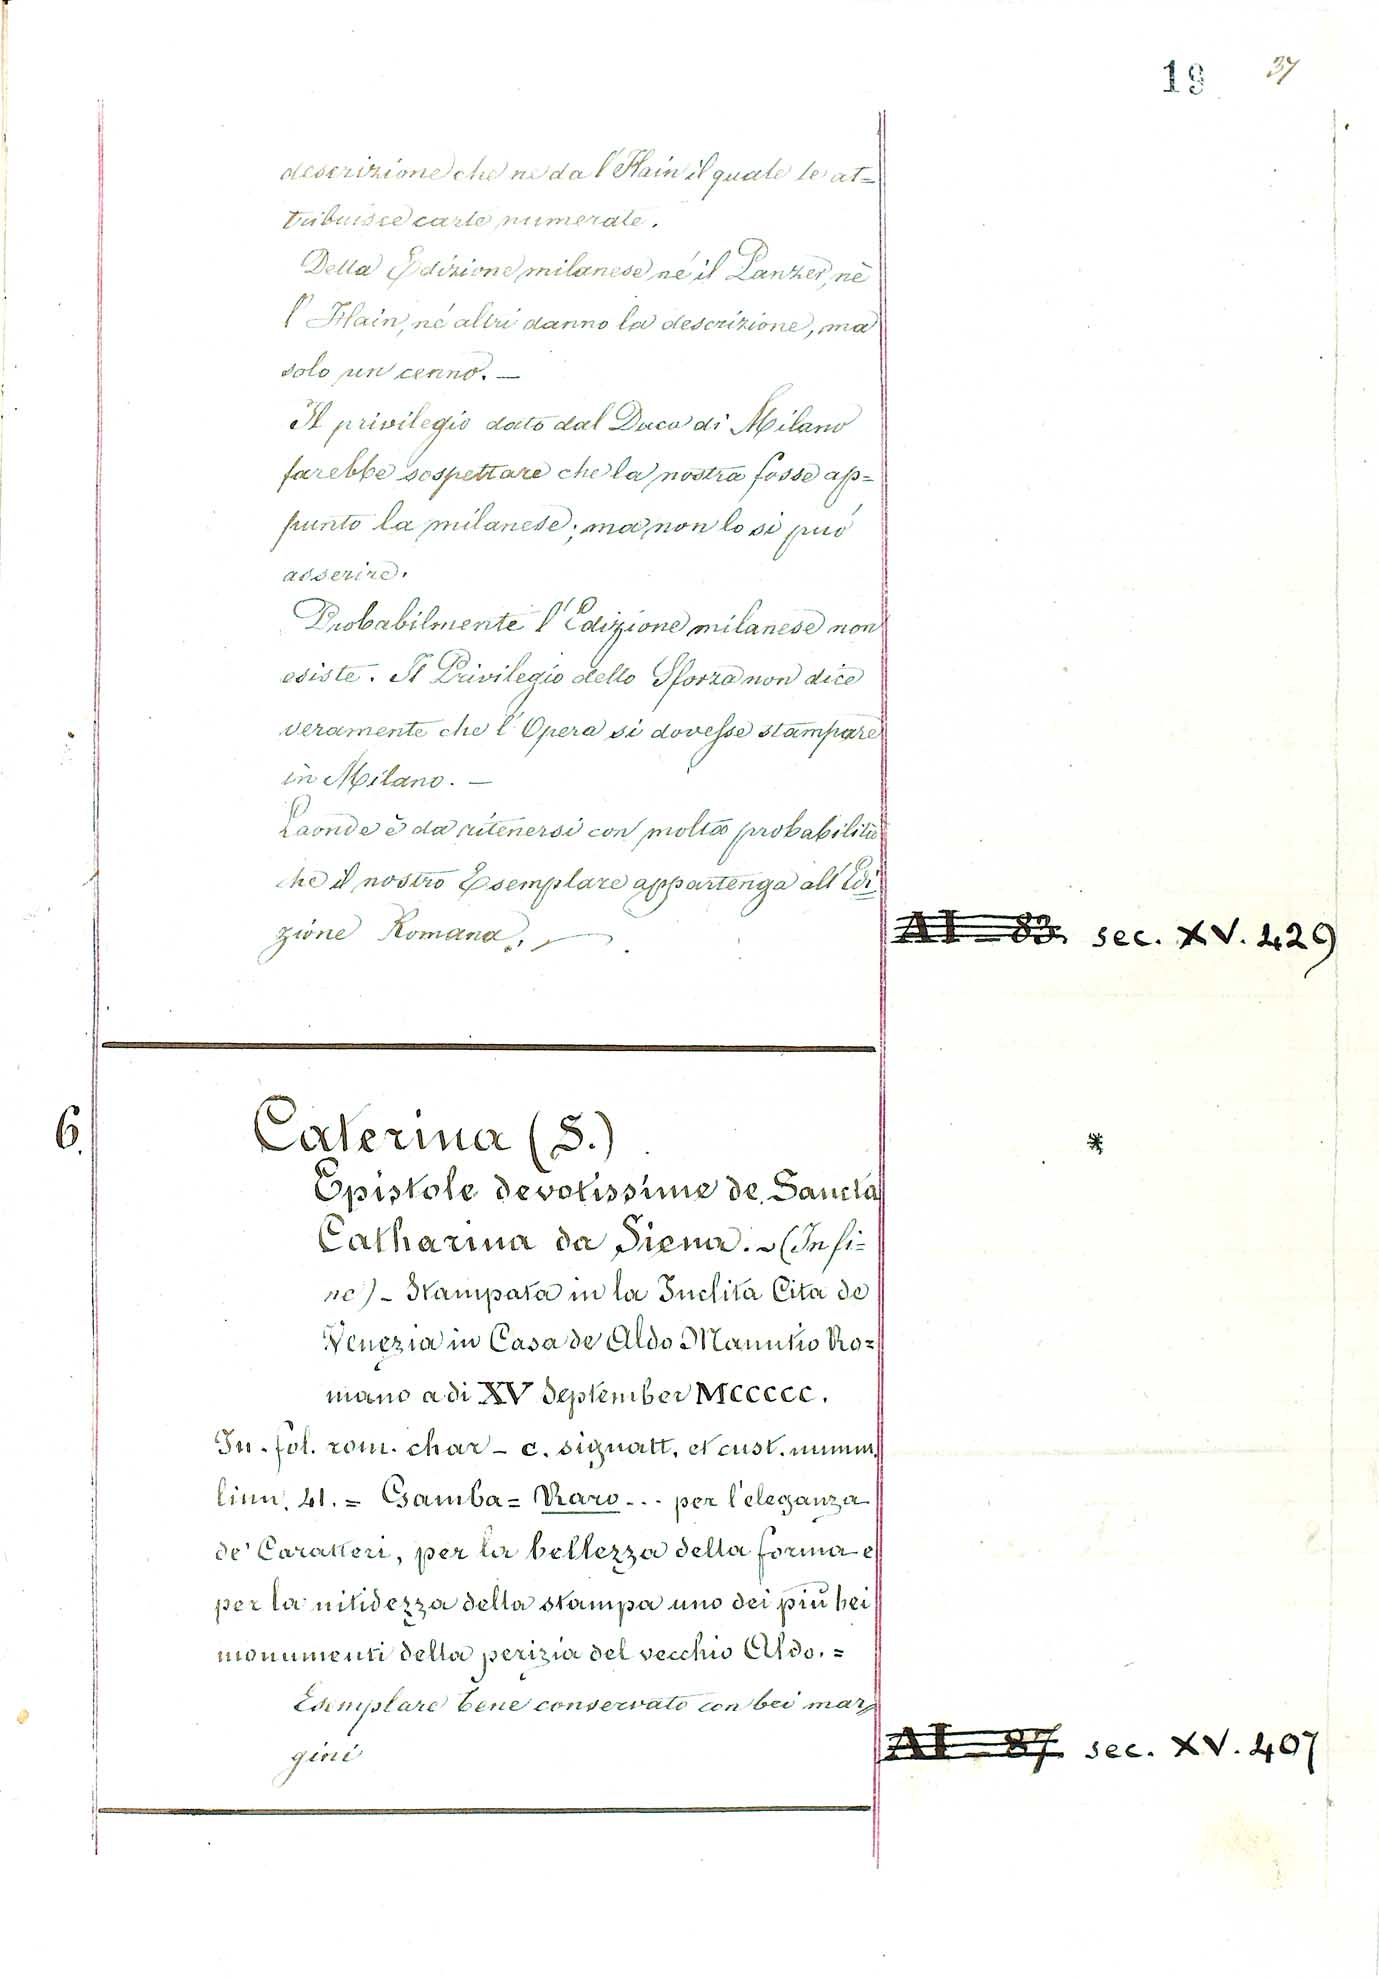 19 37
descrizione che ne da l'Hain il quale le at=
tribuisce carte numerate.
Della Edizione milanese né il Panzer, nè
l'Hain, né altri danno la descrizione, ma
solo un cenno. —
Il privilegio dato dal Duca di Milano
farebbe sospettare che la nostra fosse ap=
punto la milanese; ma non lo si può
asserire.
Probabilmente l'Edizione milanese non
esiste. Il Privilegio dello Sforza non dice
veramente che l'Opera si dovesse stampare
in Milano. —
Laonde è da ritenersi con molta probabilità
che il nostro Esemplare appartenga all'Edi
zione Romana. —
AI — 83. sec. XV. 429
6.
Caterina (S.)
*
Epistole devotissime de Sancta
Catharina da Siena. ~ (In fi=
ne) - Stampata in la Inclita Cita de
Venezia in Casa de Aldo Manutio Ro=
mano a di XV September MCCCCC.
In - fol. rom. char - c. signatt. et cust. numm.
linn. 41. = Gamba = Raro - . . per l'eleganza
de' Caratteri, per la bellezza della forma e
per la nitidezza della stampa uno dei più bei
monumenti della perizia del vecchio Aldo. =
Esemplare bene conservato con bei mar=
gini
AI — 87 sec. XV. 407